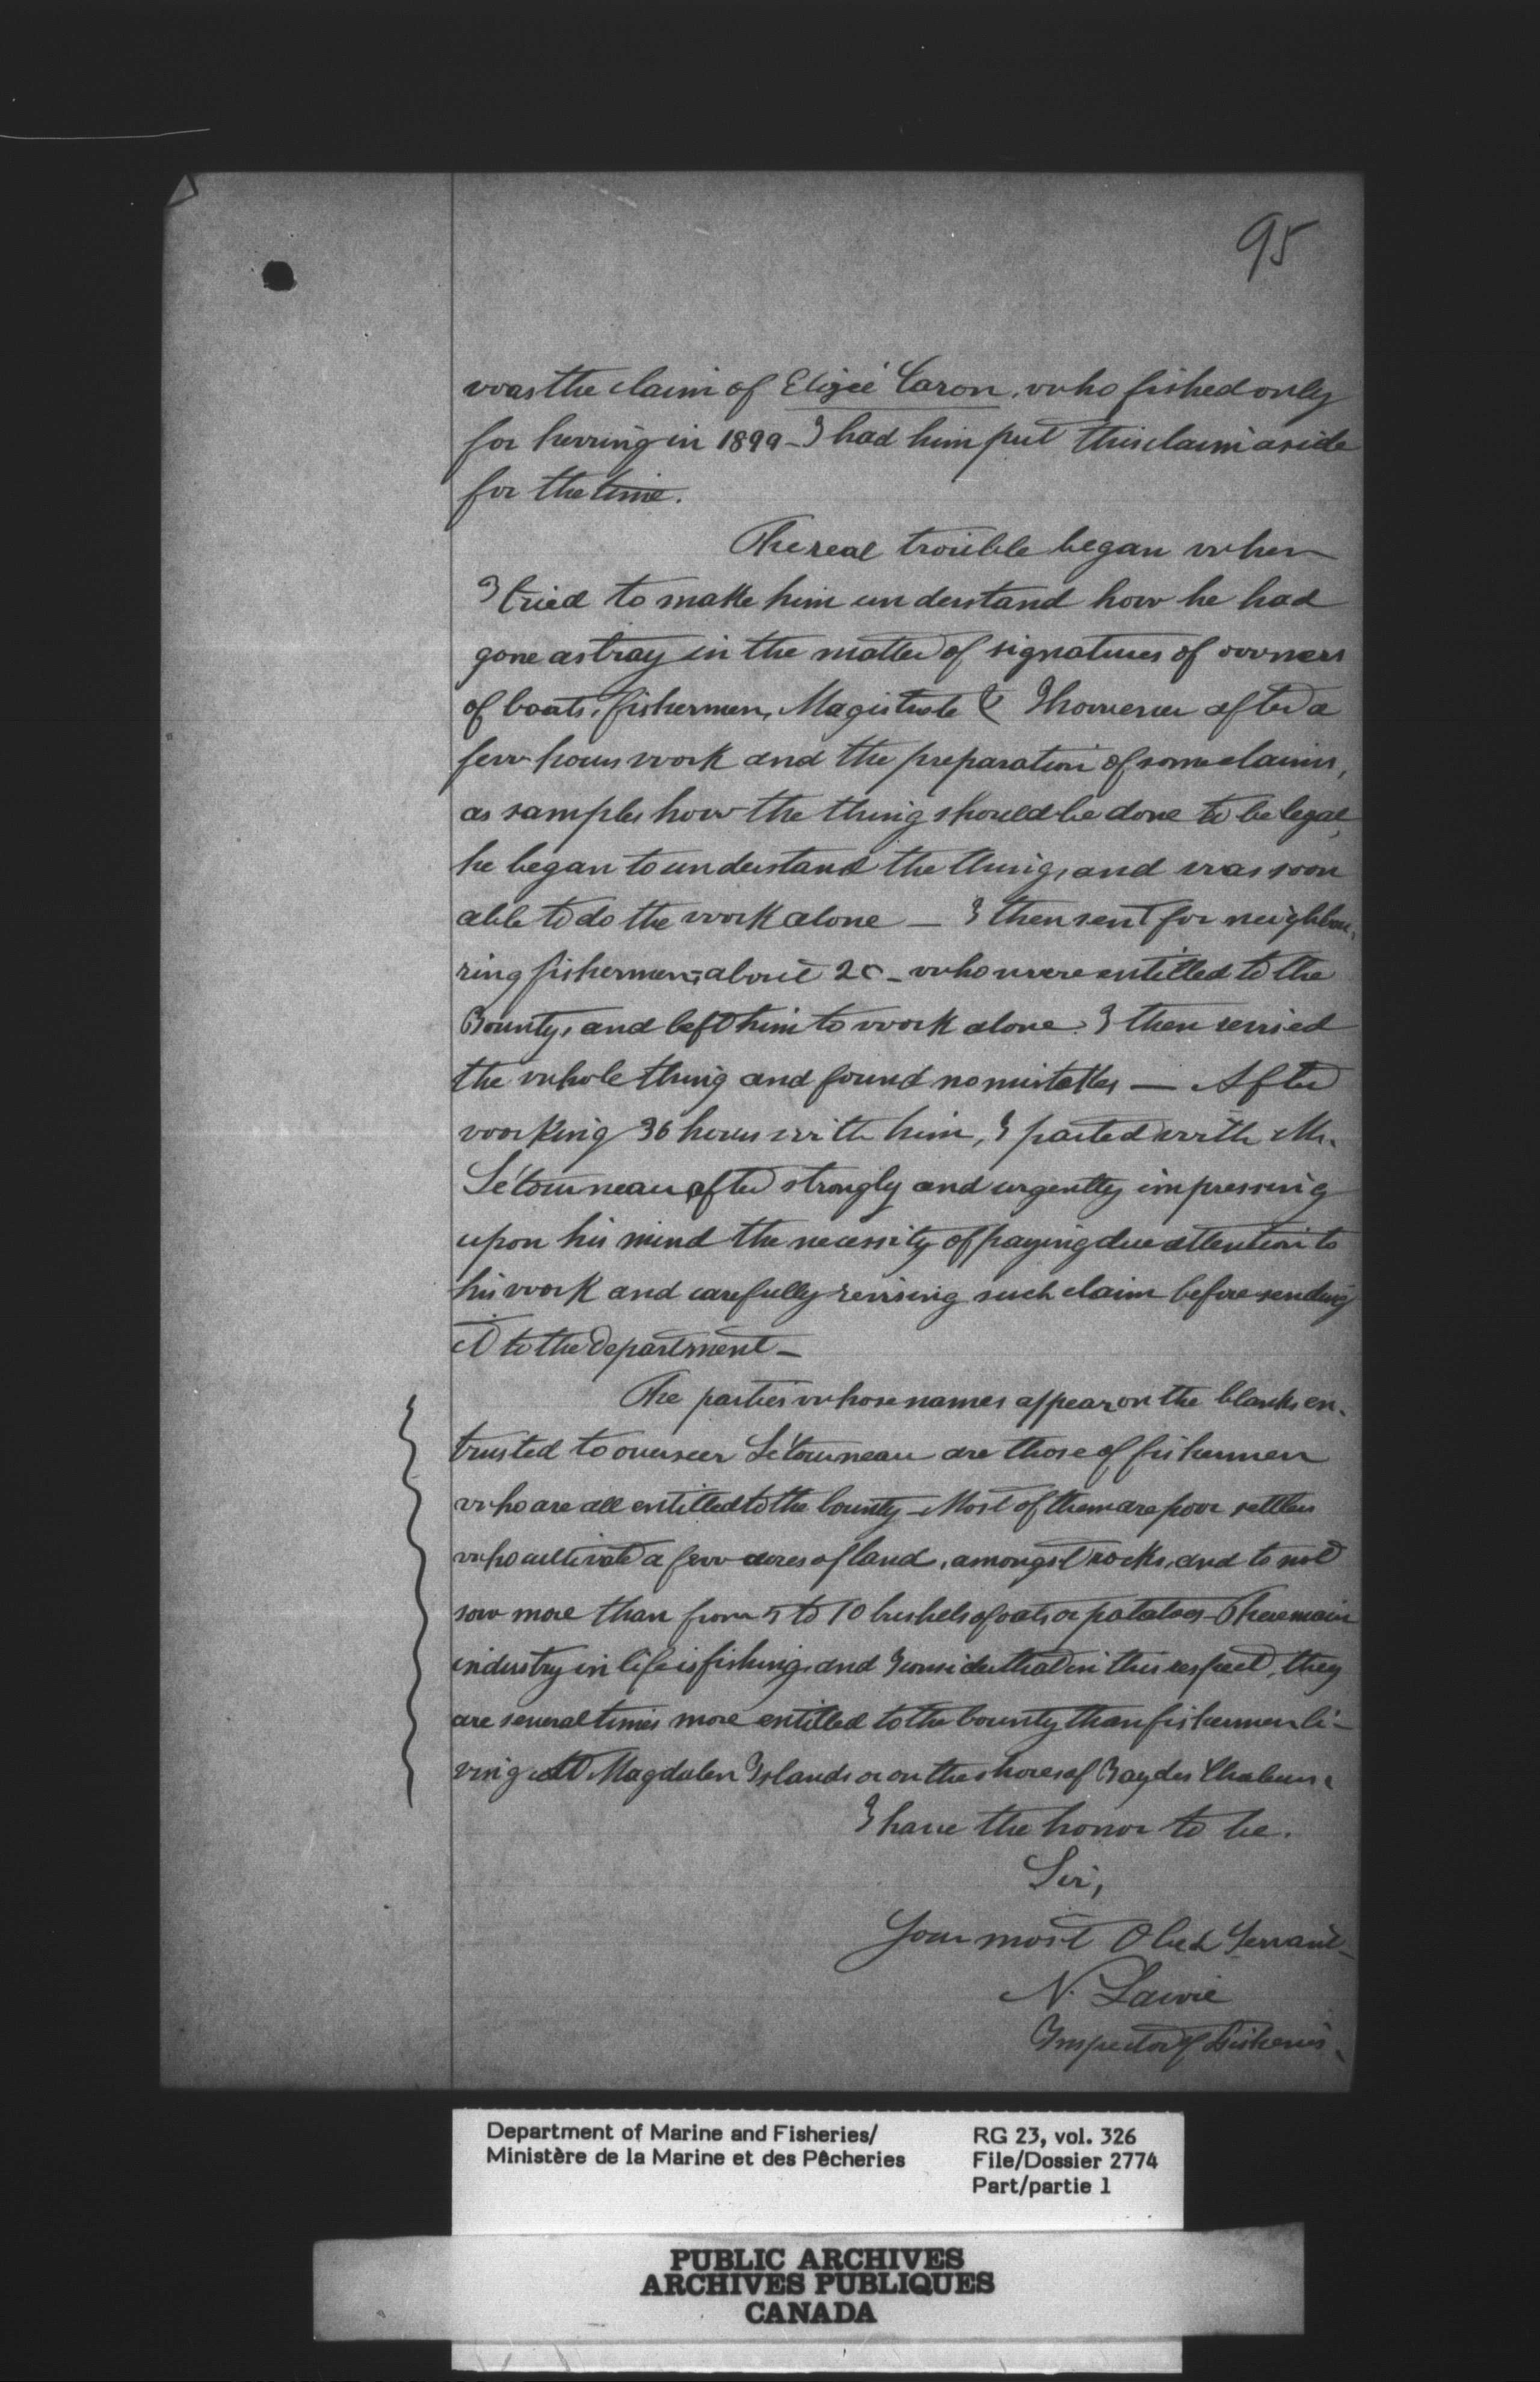 95
was the claim of Elizéé Caron, who fished only
for herring in 1899 - I had him put this claim aside
for the time.
The real trouble began when
I tried to make him understand how he had
gone astray in the matter of signatures of owners
of boats, fishermen, Magistrate & However after a
few hours work and the preparation of some claims,
as samples how the thing should be done to be legal,
he began to understand the thing, and was soon
able to do the work alone - I then sent for neighbou-
ring fishermen, about 20 - who were entitled to the
Bounty, and left him to work alone. I then revised
the whole thing and found no mistakes - After
working 36 hours with him, I parted with Mr.
Létourneau after strongly and urgently impressing
upon his mind the necessity of paying due attention to
his work and carefully revising such claim before sending
it to the Department -
The parties whose names appear on the blanks en-
trusted to overseer Létourneau are those of fishermen
who are all entitled to the bounty - Most of them are poor settlers
who cultivate a few acres of land, amongst rocks, and to not
sow more than from 5 to 10 bushels of oats or potatoes - Their main
industry in life is fishing, and I consider that in this respect, they
are several times more entitled to the bounty than fishermen li-
ving at Magdalen Islands or on the shores of Bay des Chaleurs.
I have the honor to be.
Sir,
Your most Obed Servant -
N. Lavoie
Inspector of Fisheries.
Department of Marine and Fisheries/
Ministère de la Marine et des Pêcheries
RG 23, vol. 326
File/Dossier 2774
Part/partie 1
PUBLIC ARCHIVES
ARCHIVES PUBLIQUES
CANADA